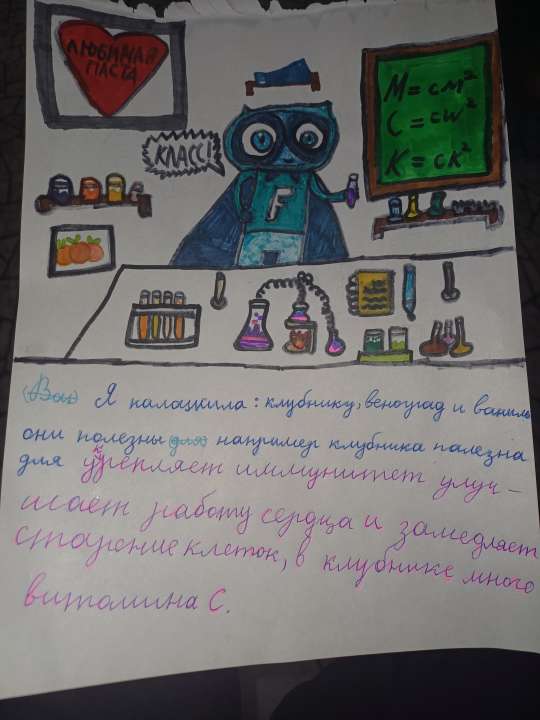 ЛЮБИМАЯ
ПАСТА
КЛАСС!
F
M = cm²
C = cw²
K = ck²
Я налашкила: клубнику, веноград и ваниль
они полезны например клубника палезна
для укрепляет иммунитет улуч-
шает работу сердца и замедляет
старение клеток, в клубнике много
витомина С.